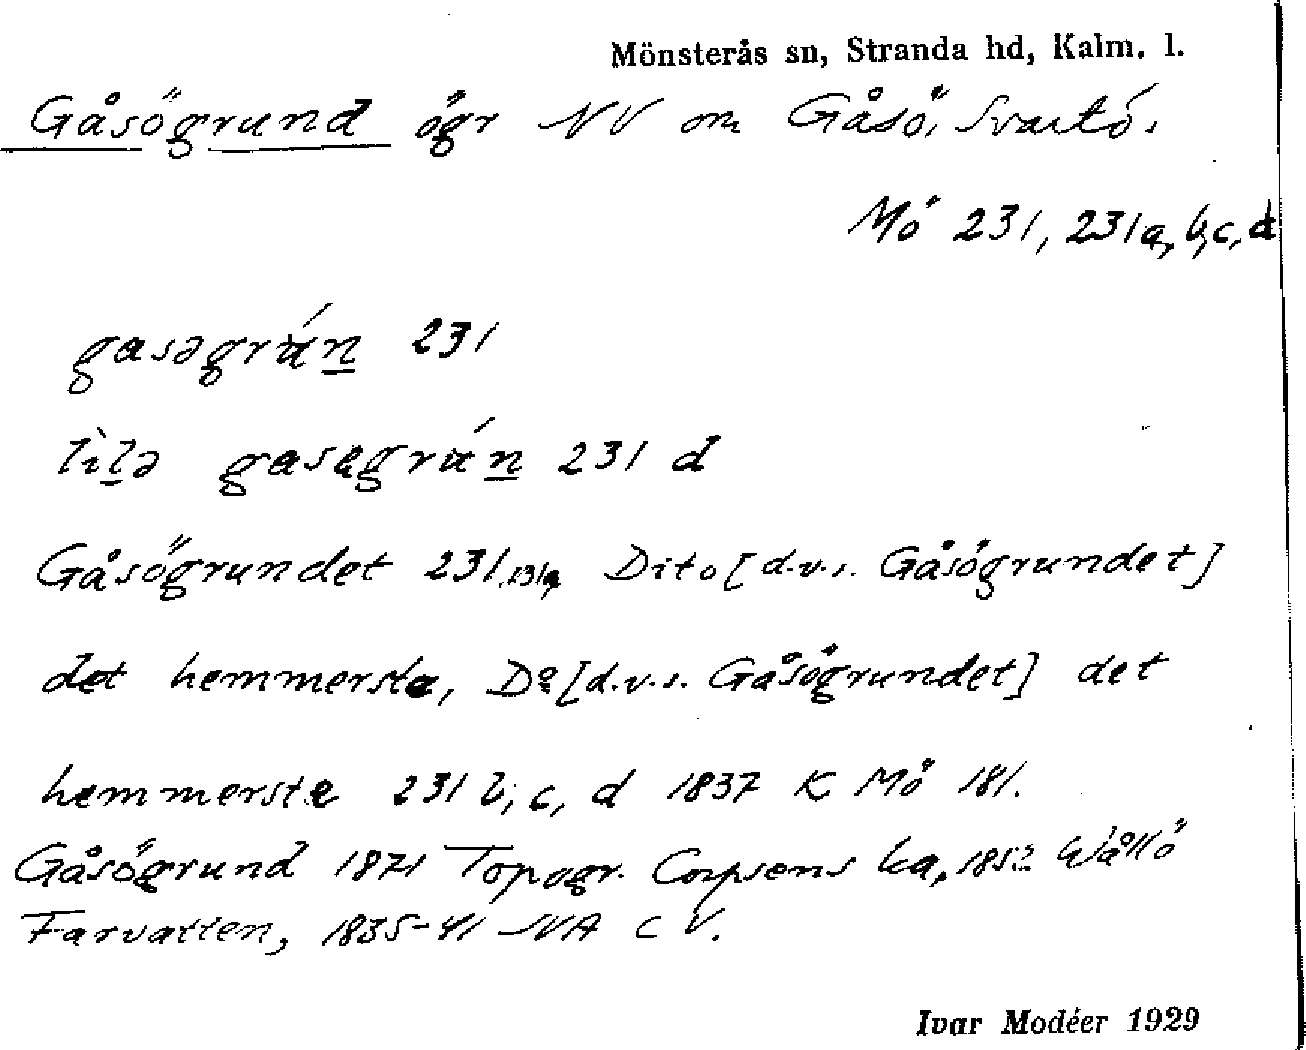 Mönsterås sn, Stranda hd, Kalm. l.
Gåsögrund ögr NV om Gåsö, Svartö.
Mö 231, 231a, b, c, d
gasəgrún 231
lìlə gasəgrún 231 d
Gåsögrundet 231, 131a, Dito [d.v.s. Gåsögrundet]
det hemmerste, Dº [d.v.s. Gåsögrundet] det
hemmerste 231 b, c, d 1837 K Mö 181.
Gåsögrund 1871 Topogr. Corpsens ka, 1852 Wållö
Farvatten, 1835-41 NA C V.
Ivar Modéer 1929